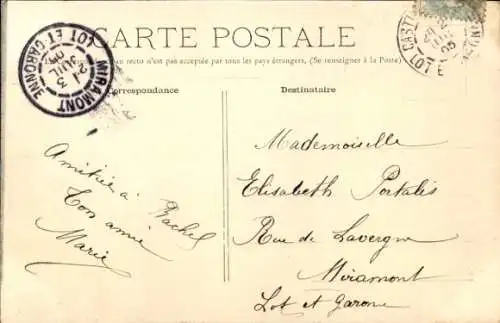 CARTE POSTALE
recto n'est pas acceptée par tous les pays étrangers. (Se renseigner à la Poste)
Correspondance
Destinataire
MIRAMONT
LOT ET GARONNE
2 3
JUIL
05
LOT
Amitiée à Rachel
Ton amie
Marie
Mademoiselle
Elisabeth Portalis
Rue de Lavergne
Miramont
Lot et Garone